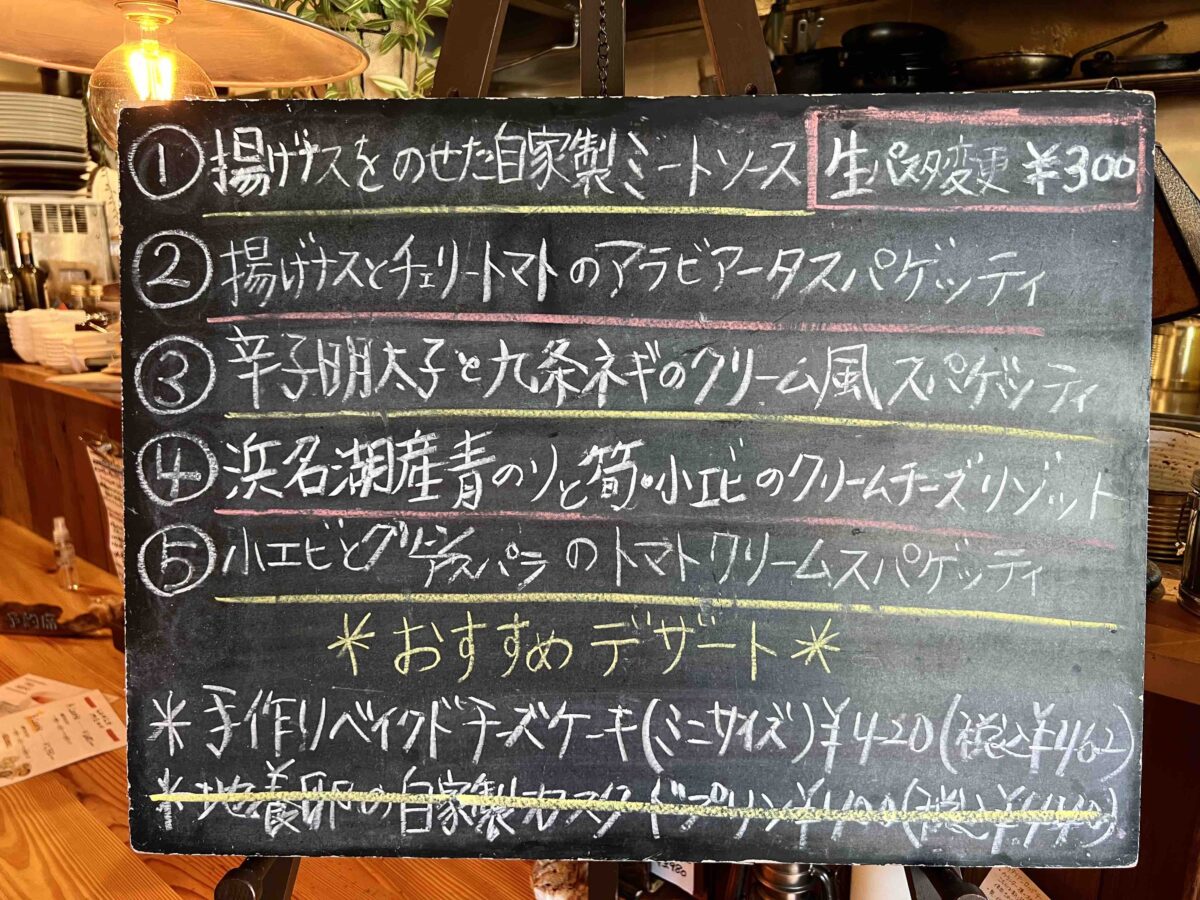 ① 揚げナスをのせた自家製ミートソース 生パスタ変更 ¥300
② 揚げナスとチェリートマトのアラビアータスパゲッティ
③ 辛子明太子と九条ネギのクリーム風スパゲッティ
④ 浜名湖産青のりと筍・小エビのクリームチーズリゾット
⑤ 小エビとグリーンアスパラのトマトクリームスパゲッティ
*おすすめデザート*
*手作りベイクドチーズケーキ(ミニサイズ)¥420(税込¥462)
*地養卵の自家製カスタードプリン¥400(税込¥440)